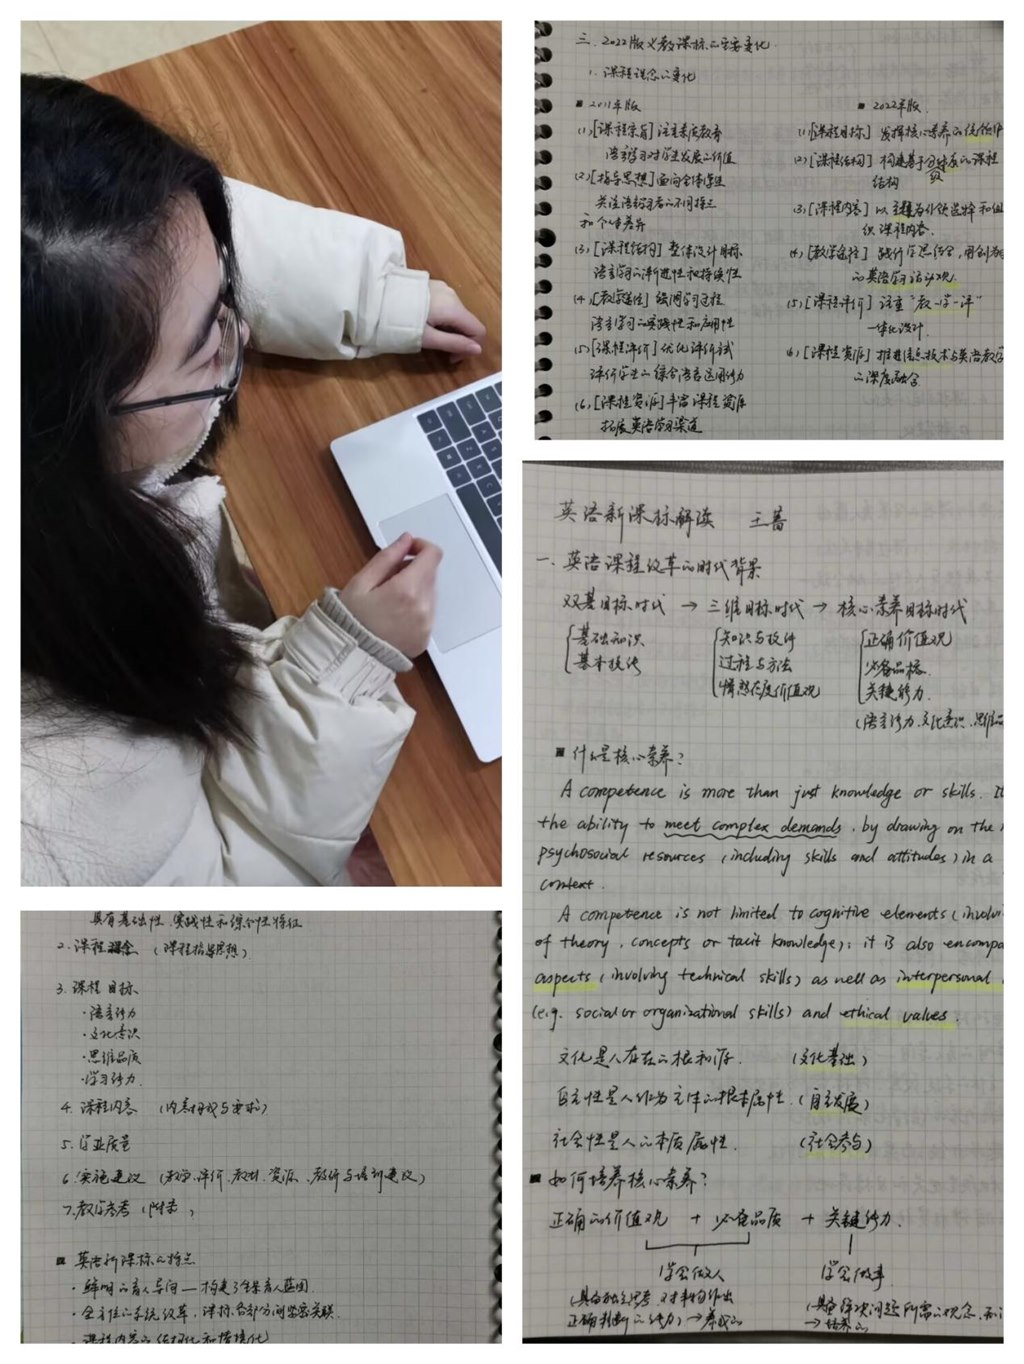 三. 2022版义教课标的主要变化
1. 课程理念的变化
■ 2011年版
(1)[课程宗旨] 注重素质教育
语言学习对学生发展的价值
(2)[指导思想] 面向全体学生
关注语言学习者的不同特点
和个体差异
(3)[课程结构] 整体设计目标
语言学习的渐进性和持续性
(4)[教学途径] 强调学习过程
语言学习的实践性和应用性
(5)[课程评价] 优化评价
评价学生的综合语言运用能力
(6)[课程资源] 丰富课程资源
拓展英语学习渠道
■ 2022年版
(1)[课程目标] 发挥核心素养的统领作
(2)[课程结构] 构建基于分级的课程
结构
(3)[课程内容] 以主题为引领选择和组
织课程内容
(4)[教学途径] 践行学思结合, 用创为
的英语学习活动观
(5)[课程评价] 注重“教-学-评”
一体化设计
(6)[课程资源] 推进信息技术与英语教学
的深度融合
英语新课标解读 王蔷
一. 英语课程改革的时代背景
双基目标时代 → 三维目标时代 → 核心素养目标时代
基础知识 知识与技能 正确价值观
基本技能 过程与方法 必备品格
情感态度价值观 关键能力
(语言能力. 文化意识. 思维品
■ 什么是核心素养?
A competence is more than just knowledge or skills. It
the ability to meet complex demands, by drawing on the
psychosocial resources (including skills and attitudes) in a
context.
A competence is not limited to cognitive elements (involvi
of theory, concepts or tacit knowledge); it is also encompa
aspects (involving technical skills) as well as interpersonal
(e.g. social or organizational skills) and ethical values.
文化是人存在的根和源. (文化基础)
自主性是人作为主体的根本属性. (自主发展)
社会性是人的本质属性. (社会参与)
■ 如何培养核心素养?
正确的价值观 + 必备品质 + 关键能力.
学会做人 学会做事
(具有独立思考, 对事物作出
正确判断的能力) → 养成的
(具备解决问题所需的观念,
→ 培养的
具有基础性. 实践性和综合性特征
2. 课程理念 (课程指导思想)
3. 课程目标
·语言能力
·文化意识
·思维品质
·学习能力.
4. 课程内容 (内容组成与要求)
5. 学业质量
6. 实施建议 (教学. 评价. 教材. 资源. 教研与培训建议)
7. 教学参考 (附录)
■ 英语新课标的特点
· 鲜明的育人导向 — 构建了全程育人蓝图.
· 全方位的系统改革, 课标各部分间紧密关联.
· 课程内容的结构化和情境化